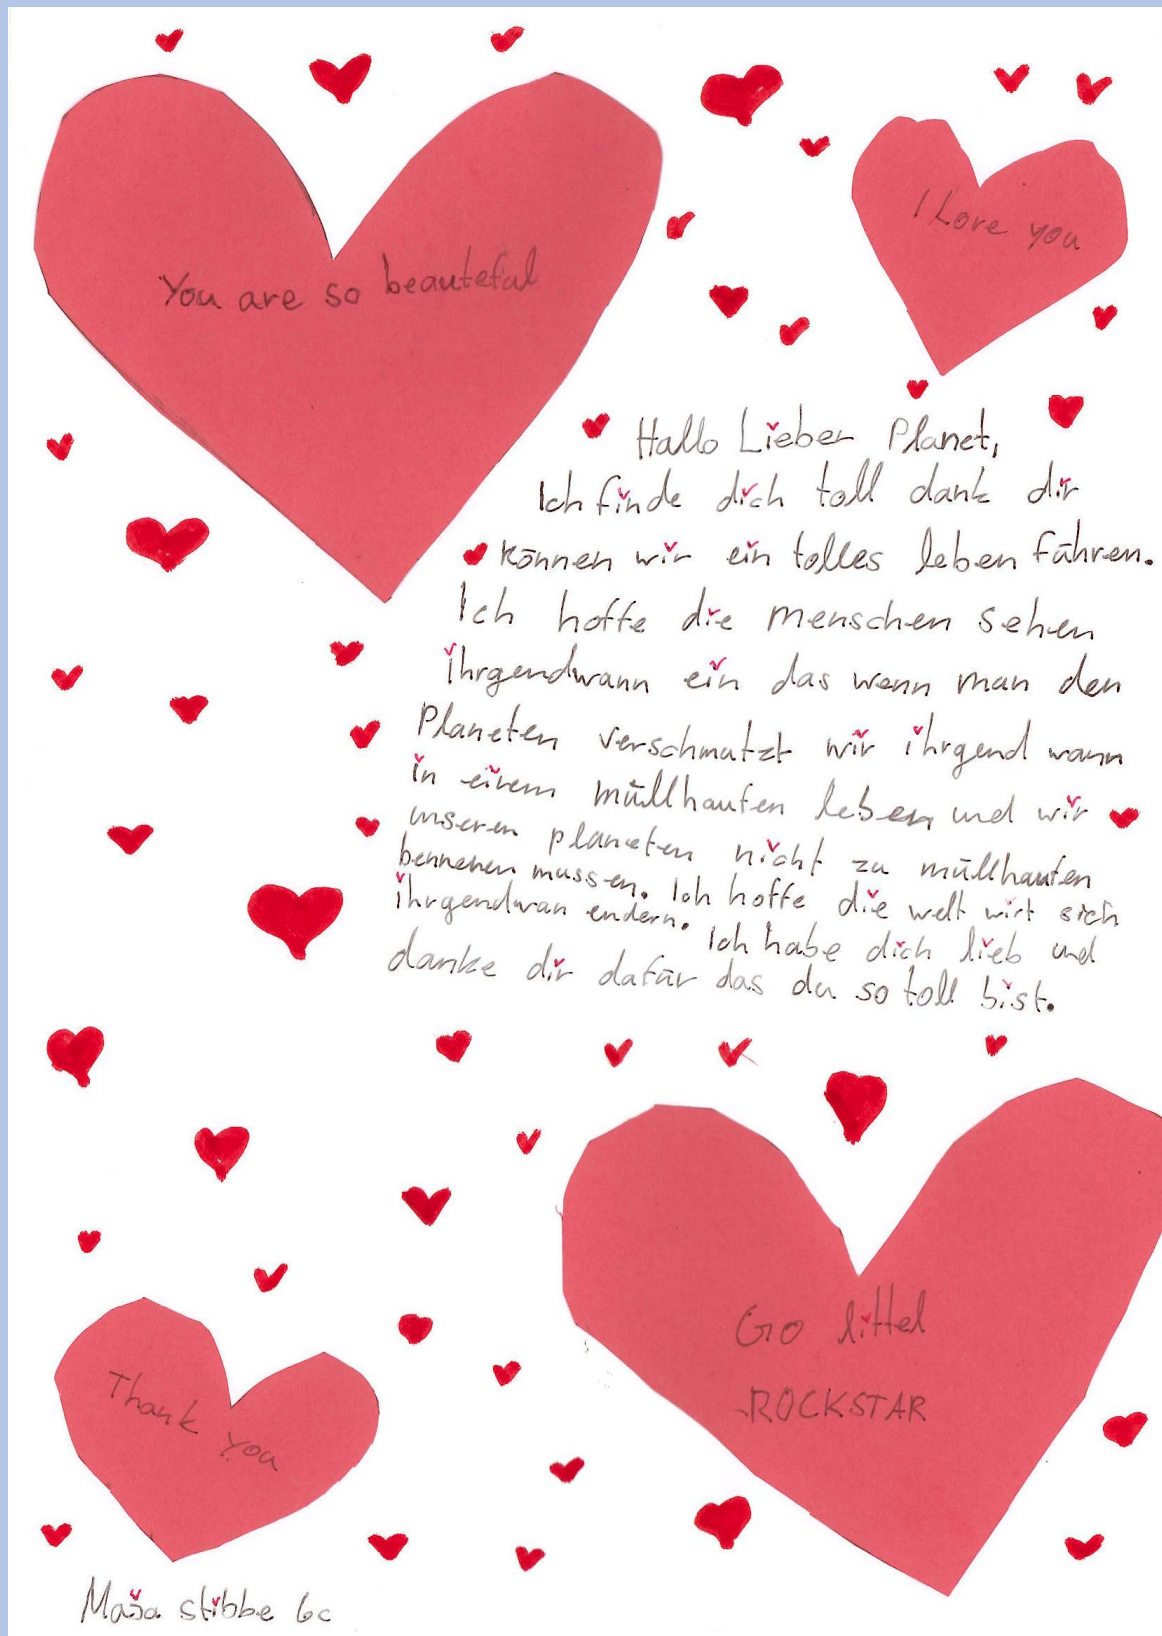 You are so beauteful
I Love you
Hallo Lieber Planet,
Ich finde dich toll dank dir
können wir ein tolles leben führen.
Ich hoffe die menschen sehen
ihrgendwann ein das wenn man den
Planeten verschmutzt wir ihrgend wann
in einem müllhaufen leben und wir
unseren planeten nicht zu müllhaufen
bennenen mussen. Ich hoffe die welt wirt sich
ihrgendwan endern. Ich habe dich lieb und
danke dir dafür das du so toll bist.
Go littel
ROCKSTAR
Thank
you
Maša stibbe 6c